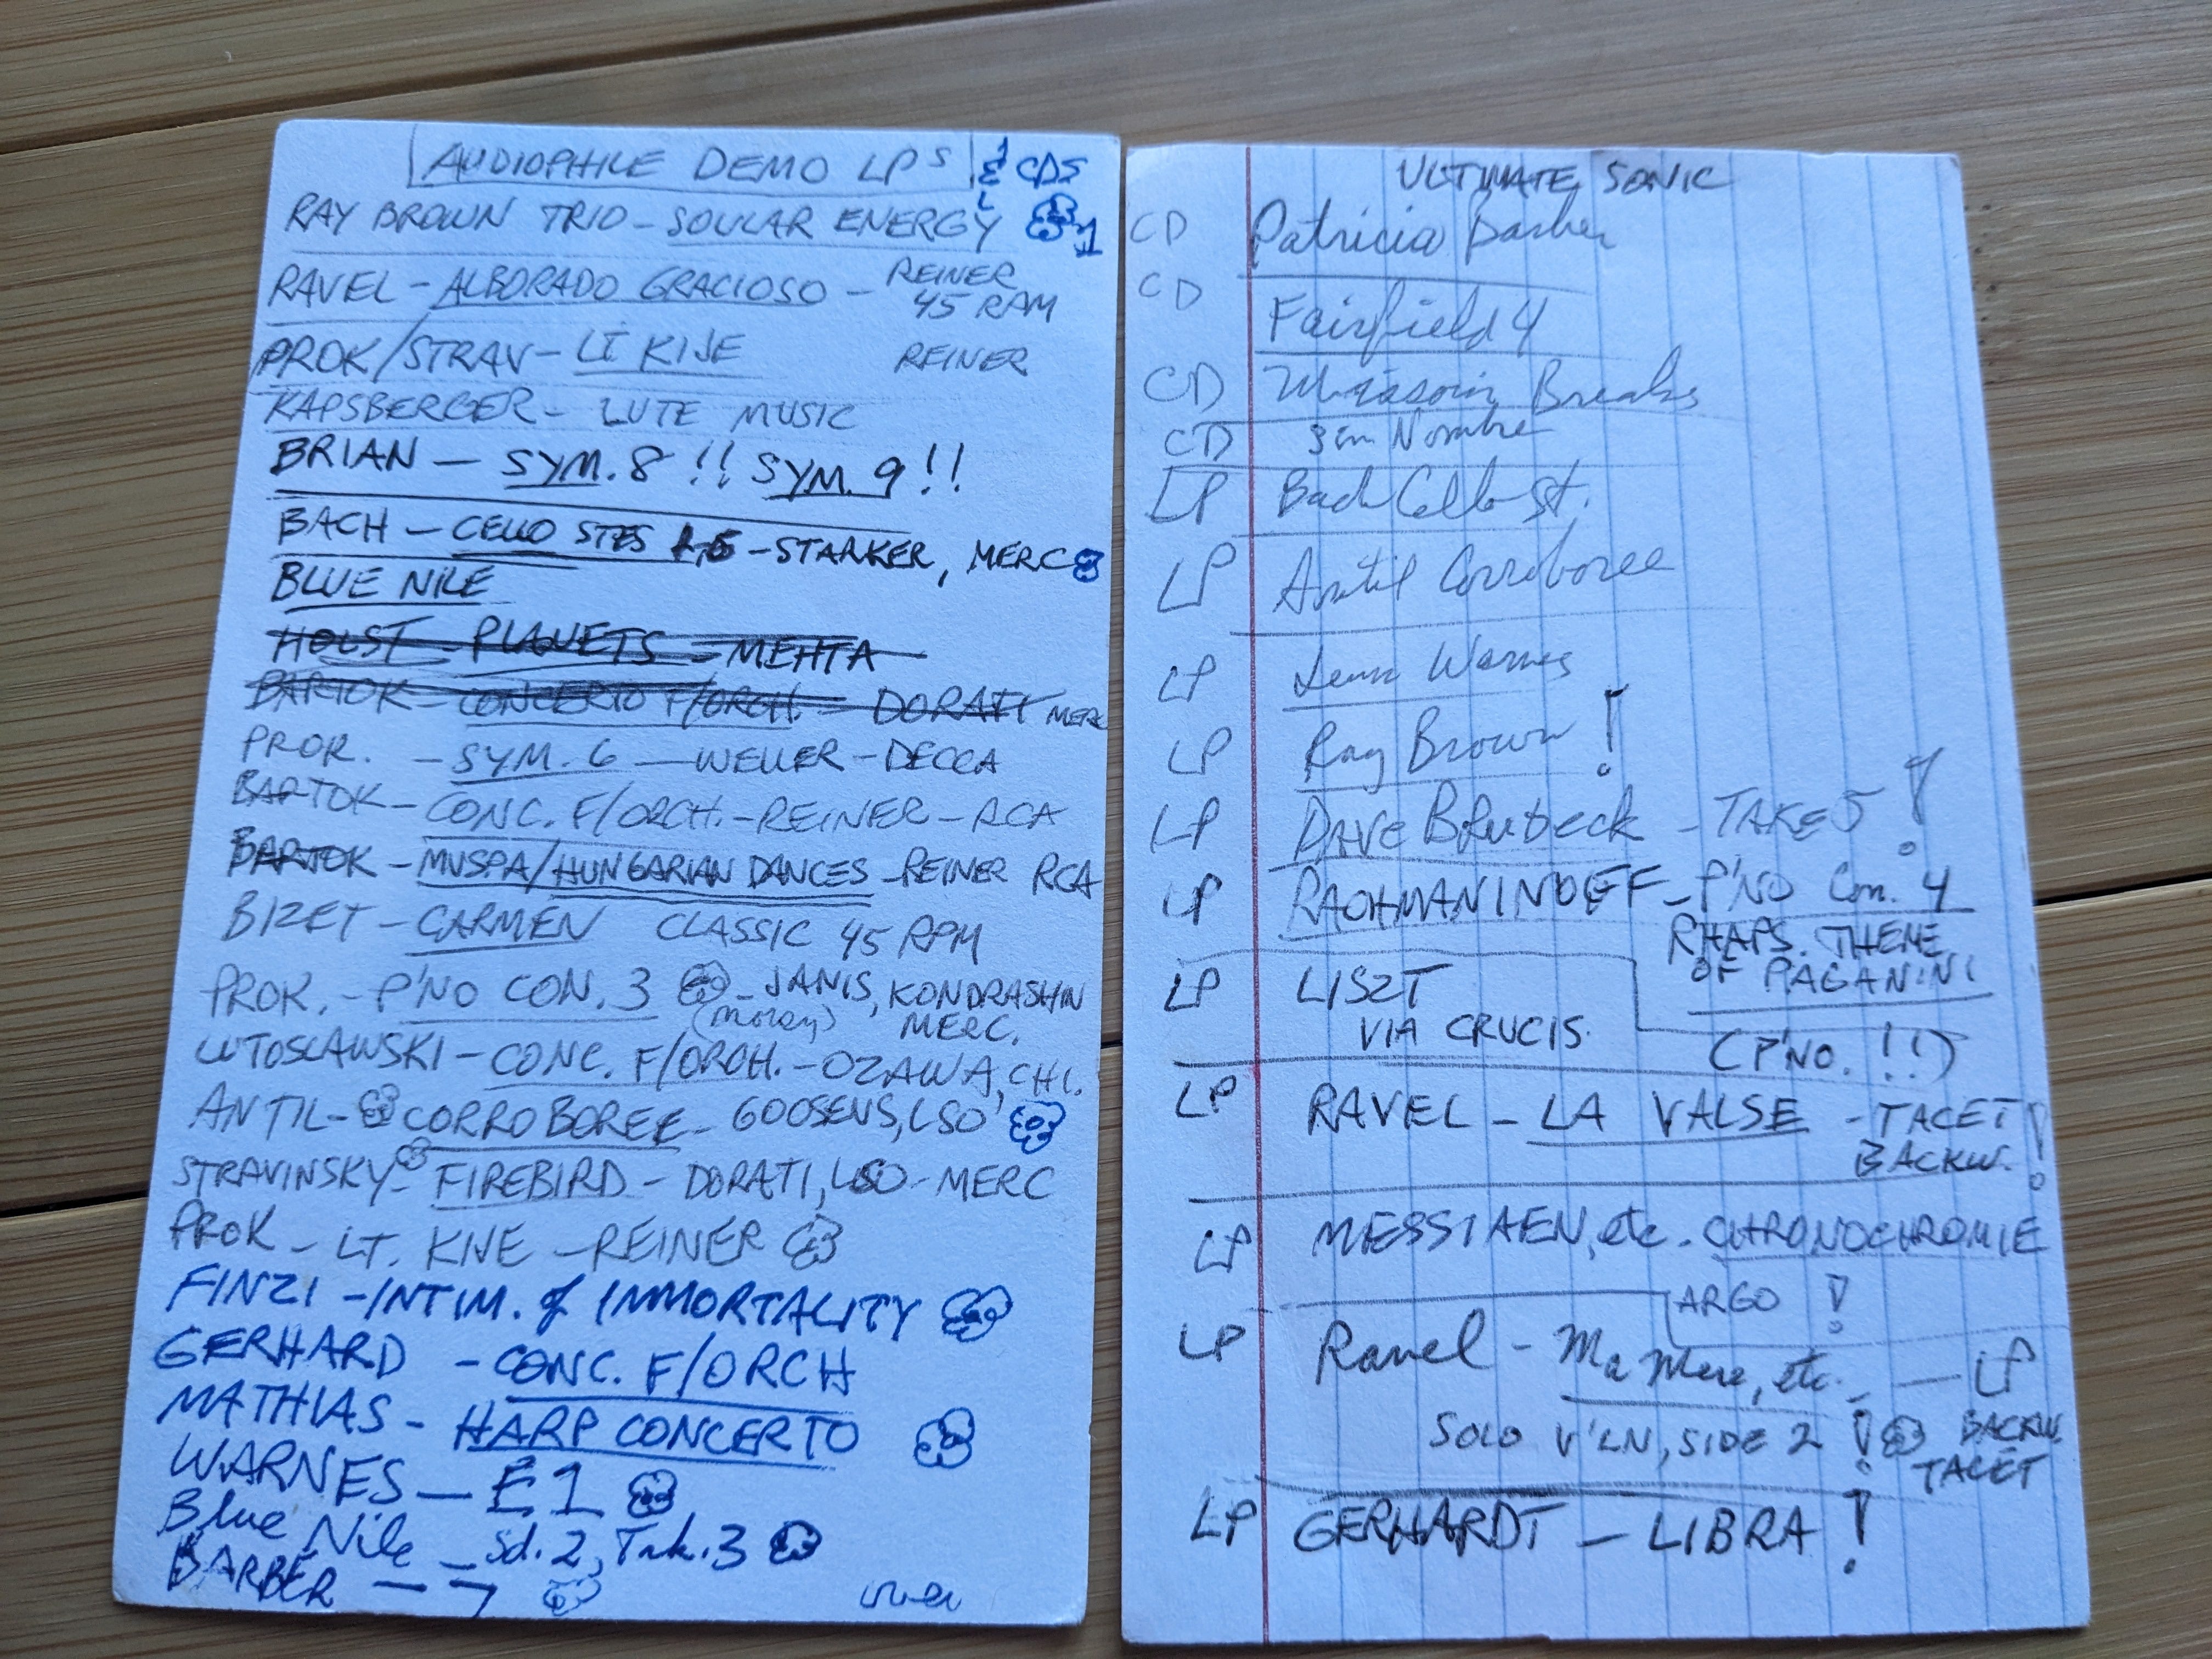 AUDIOPHILE DEMO LPS & CDS
RAY BROWN TRIO - SOULAR ENERGY 1
RAVEL - ALBORADO GRACIOSO - REINER
45 RAM
PROK/STRAV - LT KIJE REINER
KAPSBERGER - LUTE MUSIC
BRIAN - SYM. 8 !! SYM. 9 !!
BACH - CELLO STES - STARKER, MERC
BLUE NILE
HOLST - PLANETS - MEHTA
BARTOK - CONCERTO F/ORCH. - DORATI MERC
PROK. - SYM. 6 - WELLER - DECCA
BARTOK - CONC. F/ORCH. - REINER - RCA
BARTOK - MUSPA/HUNGARIAN DANCES - REINER RCA
BIZET - CARMEN CLASSIC 45 RPM
PROK. - P'NO CON. 3 - JANIS, KONDRASHIN
MERC.
LUTOSLAWSKI - CONC. F/ORCH. - OZAWA, CHI.
ANTIL - CORROBOREE - GOOSENS, LSO
STRAVINSKY - FIREBIRD - DORATI, LSO - MERC
PROK - LT. KIJE - REINER
FINZI - INTIM. of IMMORTALITY
GERHARD - CONC. F/ORCH
MATHIAS - HARP CONCERTO
WARNES - E1
Blue Nile - Sd. 2, Trk. 3
BARBER - 7
over
ULTIMATE SONIC
CD Patricia Barber
CD Fairfield 4
CD Breaks
CD Sin Nombre
LP Bach Cello St.
LP Antil Corroboree
LP Jenn Warnes
LP Ray Brown !
LP DAVE BRUBECK - TAKE 5 !
LP RACHMANINOFF - P'NO Con. 4
RHAPS. THEME
OF PAGANINI
(P'NO. !!)
LP LISZT
VIA CRUCIS
LP RAVEL - LA VALSE - TACET !
BACKW.
LP MESSIAEN, etc. - CHRONOCHROMIE
ARGO !
LP Ravel - Ma Mere, etc. - LP
SOLO V'LN, SIDE 2 ! BACKW.
TACET
LP GERHARDT - LIBRA !